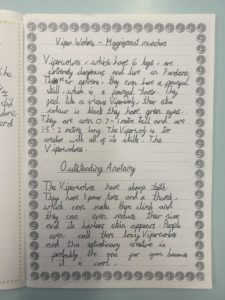 Viper Wolves - Magnificent munchers
Viperwolves, which have 6 legs, are
extremely dangerous and live in Pandora.
extreme, they even have a powerful
skill, which is a powerful
feel like a vicious Viperwolf, their skin
colour is black they have green eyes.
They are even 0.7 - 1 metre tall and are
1.5 - 2 metres long. The Viperwolf is the
creature with all of its skills. The
Viperwolves.
Outstanding Anatomy
The Viperwolves have sharp
They have four toes and a thumb,
which can make them climb and
they can even
and its hairless skin appears. People
even call them lazy Viperwolves
and this extrodinary creature is
probably the one for you because
it is cool.
The